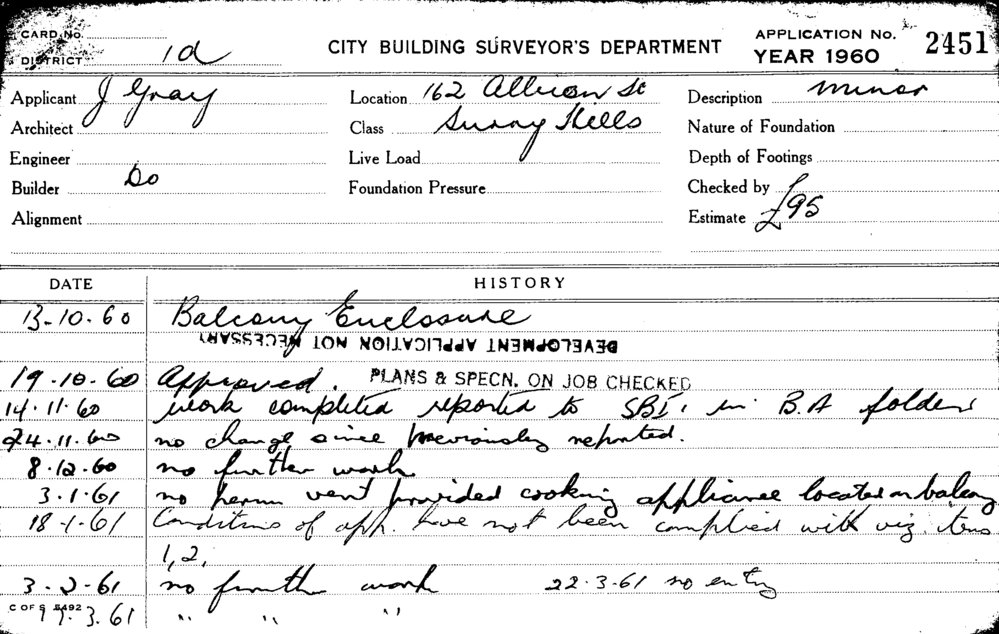 CARD No.
DISTRICT 1d
CITY BUILDING SURVEYOR'S DEPARTMENT
APPLICATION No. 2451
YEAR 1960
Applicant J Gray
Location 162 Albion St
Description minor
Architect
Class Surry Hills
Nature of Foundation
Engineer
Live Load
Depth of Footings
Builder Do
Foundation Pressure
Checked by
Alignment
Estimate £95
DATE HISTORY
13-10-60 Balcony Enclosure
DEVELOPMENT APPLICATION NOT NECESSARY
19-10-60 Approved. PLANS & SPECN. ON JOB CHECKED
14.11.60 work completed reported to SBI, in B.A folder
24.11.60 no change since previously reported.
8.12.60 no further work
3.1.61 no perm vent provided cooking appliance located on balcony
18-1-61 Conditions of app. have not been complied with viz. items
1, 2,
3-2-61 no further work 22.3.61 no entry
C OF S 5492
3.61 " " "